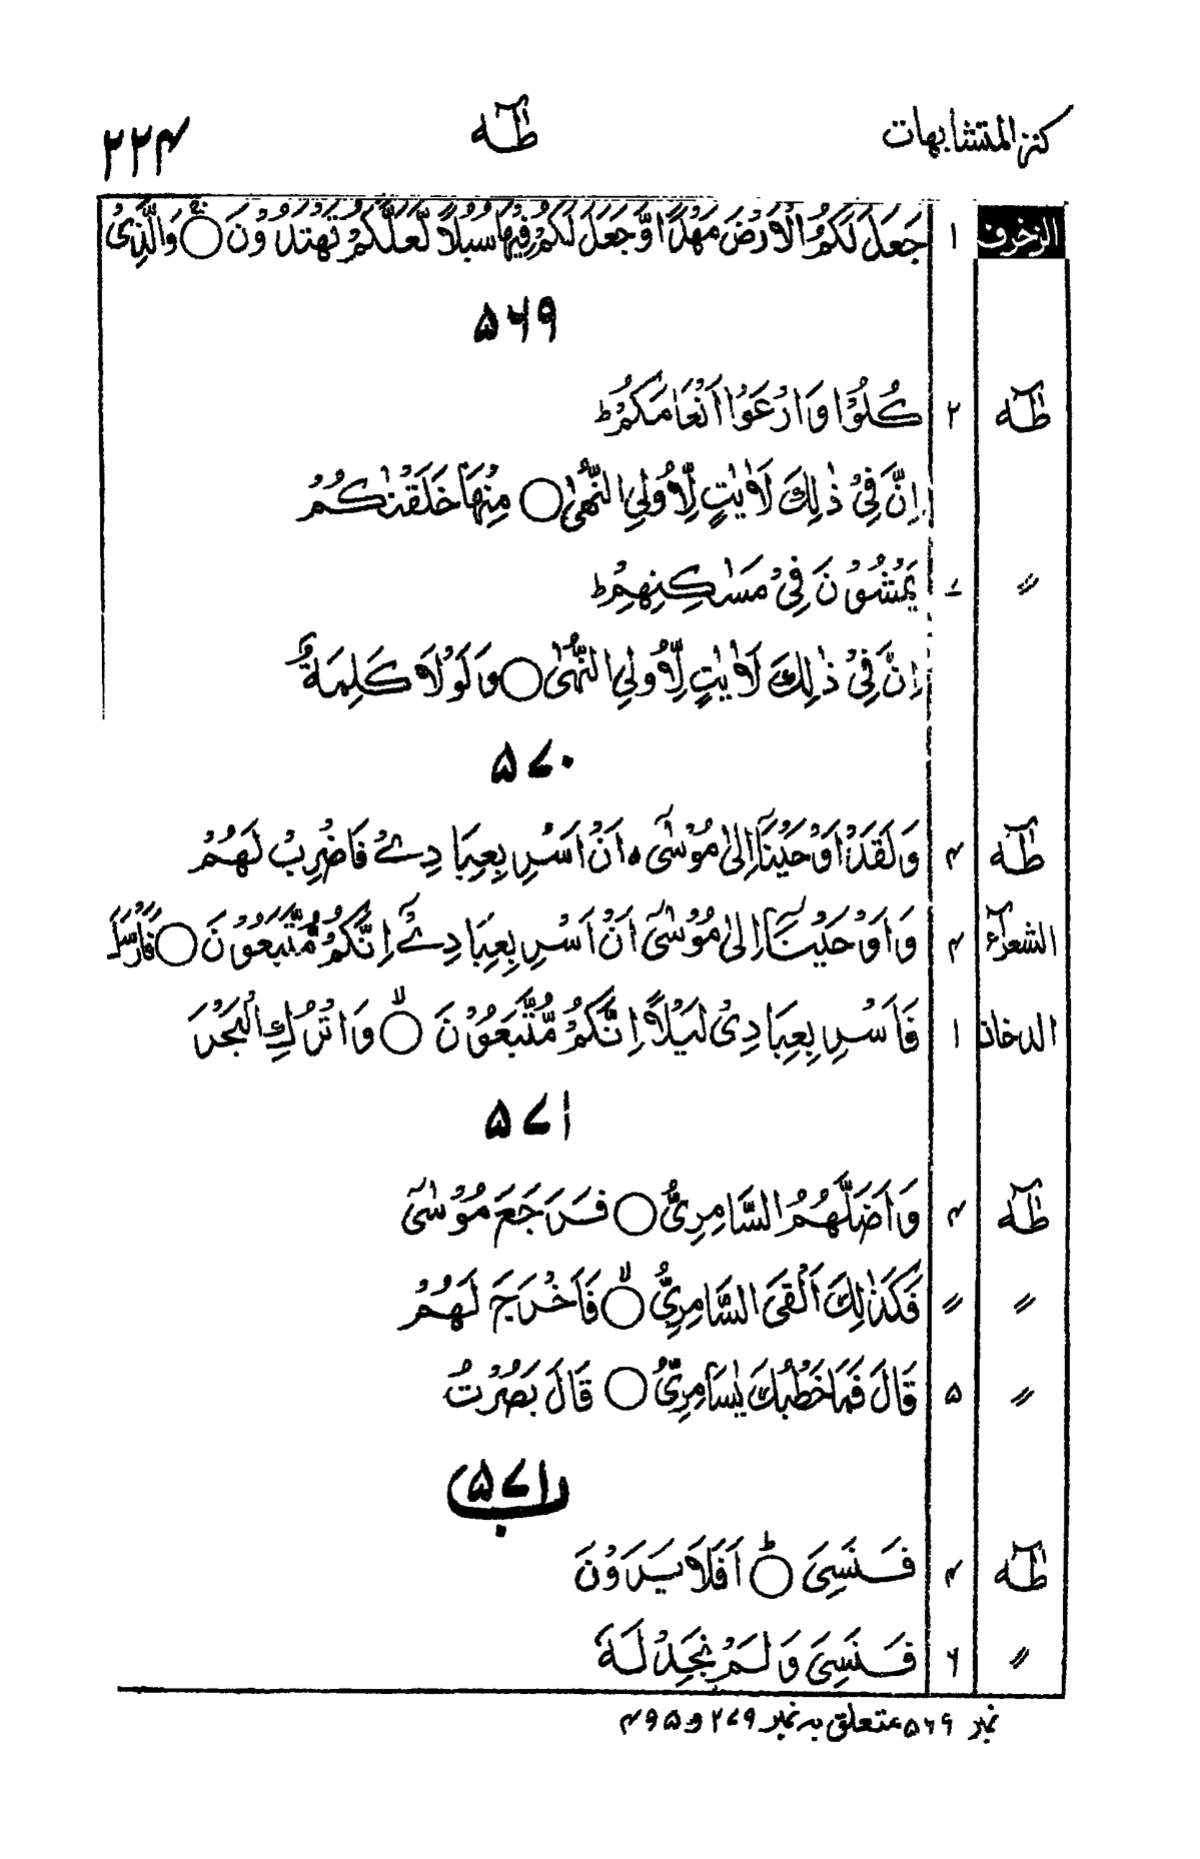 کنز المتشابهات طٰهٰ ۲۲۴
الزخرف ۱ جَعَلَ لَكُمُ الْاَرْضَ مَهْدًا وَّجَعَلَ لَكُمْ فِيْهَا سُبُلًا لَّعَلَّكُمْ تَهْتَدُوْنَ ○ۚ وَالَّذِىْ
۵۶۹
طٰهٰ ۲ كُلُوْا وَارْعَوْا اَنْعَامَكُمْ ؕ
اِنَّ فِىْ ذٰلِكَ لَاٰيٰتٍ لِّاُولِى النُّهٰى ○ مِنْهَا خَلَقْنٰكُمْ
〃 ۷ يَمْشُوْنَ فِىْ مَسٰكِنِهِمْ ؕ
اِنَّ فِىْ ذٰلِكَ لَاٰيٰتٍ لِّاُولِى النُّهٰى ○ وَلَوْلَا كَلِمَةٌ
۵۷۰
طٰهٰ ۴ وَلَقَدْ اَوْحَيْنَاۤ اِلٰى مُوْسٰىۤ ۙ اَنْ اَسْرِ بِعِبَادِىْ فَاضْرِبْ لَهُمْ
الشعراء ۴ وَاَوْحَيْنَاۤ اِلٰى مُوْسٰىۤ اَنْ اَسْرِ بِعِبَادِىْۤ اِنَّكُمْ مُّتَّبَعُوْنَ ○ فَاَرْسَلَ
الدخان ۱ فَاَسْرِ بِعِبَادِىْ لَيْلًا اِنَّكُمْ مُّتَّبَعُوْنَ ○ۙ وَاتْرُكِ الْبَحْرَ
۵۷۱
طٰهٰ ۴ وَاَضَلَّهُمُ السَّامِرِىُّ ○ فَرَجَعَ مُوْسٰىۤ
〃 〃 فَكَذٰلِكَ اَلْقَى السَّامِرِىُّ ○ۙ فَاَخْرَجَ لَهُمْ
〃 ۵ قَالَ فَمَا خَطْبُكَ يٰسَامِرِىُّ ○ قَالَ بَصُرْتُ
۵۷۱ب
طٰهٰ ۴ فَنَسِىَ ○ؕ اَفَلَا يَرَوْنَ
〃 ۶ فَنَسِىَ وَلَمْ نَجِدْ لَهٗ
نمبر ۵۶۹ متعلق بہ نمبر ۲۷۹ و ۴۹۵